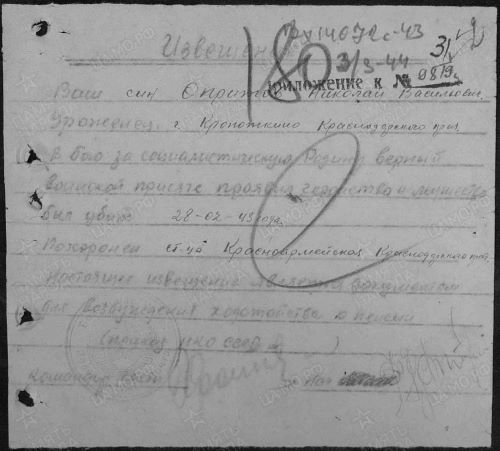 Вх 14072с-43
Извещение
3/3-44
180
Приложение к № 0819с
Ваш сын Николай Васильевич
Уроженец г. Кропоткино Краснодарского края
в бою за социалистическую Родину верный
воинской присяге проявив геройство и мужество
был убит 28-02-43 года
Похоронен ст-ца Красноармейская Краснодарского края
Настоящее извещение является документом
для возбуждения ходатайства о пенсии
(приказ НКО СССР № )
Командир части